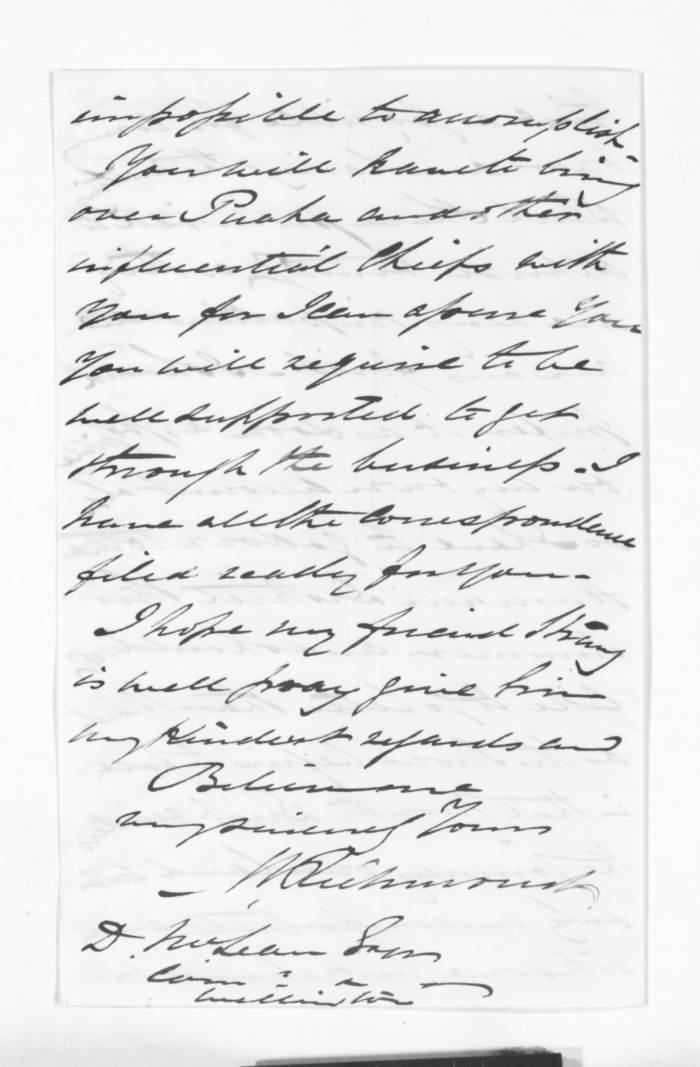 impossible to accomplish
You will have to bring
over Puaha and other
influential Chiefs with
You for I can assure You
You will require to be
well supported to get
through the business. I
have all the correspondence
filed ready for You -
I hope my friend Strang
is well pray give him
my kindest regards and
Believe me
my sincerely Yours
M Richmond
D. McLean Esqr
Comr
Wellington